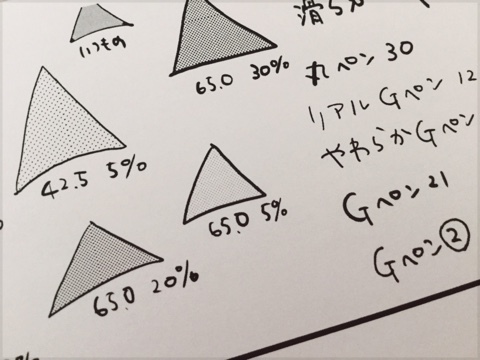 いつもの
65.0 30%
42.5 5%
65.0 5%
65.0 20%
滑らか
丸ペン 30
リアルGペン 12
やわらかGペン
Gペン 21
Gペン②